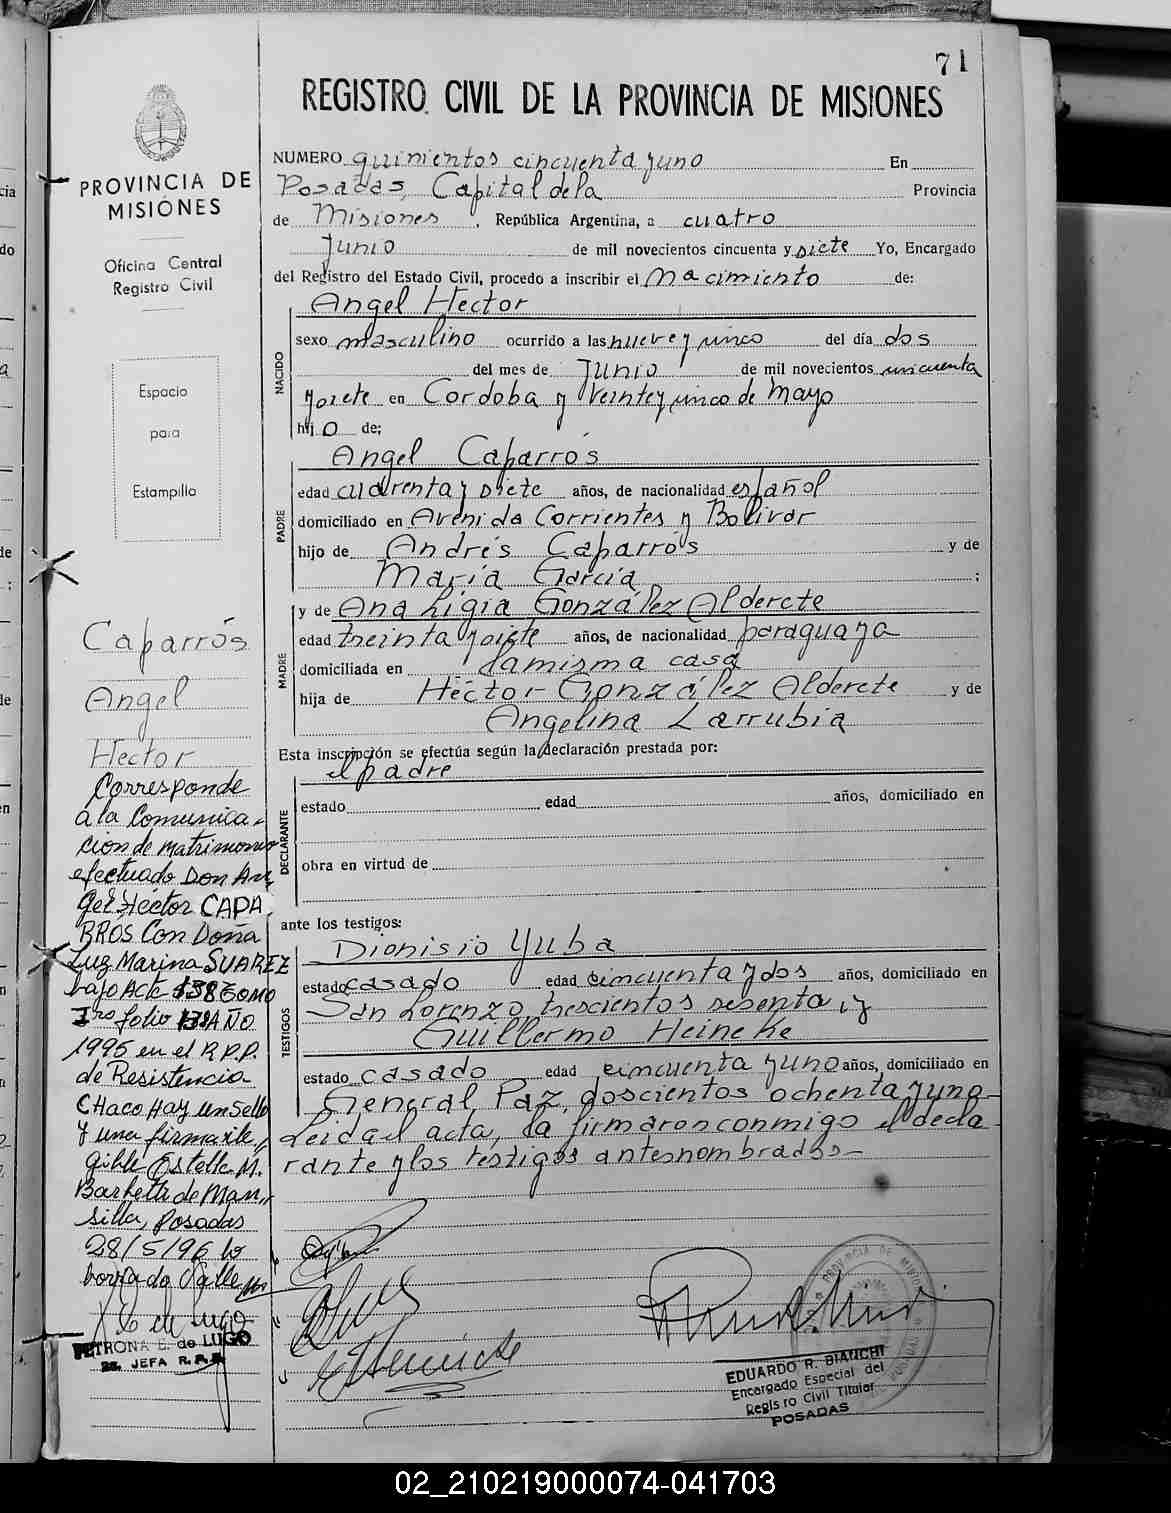 71
REGISTRO CIVIL DE LA PROVINCIA DE MISIONES
NUMERO quinientos cincuenta y uno En
Posadas, Capital de la Provincia
de Misiones, República Argentina, a cuatro
Junio de mil novecientos cincuenta y siete Yo, Encargado
del Registro del Estado Civil, procedo a inscribir el Nacimiento de:
NACIDO
Angel Hector
sexo masculino ocurrido a las nueve y cinco del día dos
del mes de Junio de mil novecientos cincuenta
y siete en Cordoba y Veinte y cinco de Mayo
hijo de;
PADRE
Angel Caparrós
edad cuarenta y siete años, de nacionalidad español
domiciliado en Avenida Corrientes y Bolivar
hijo de Andrés Caparrós y de
María García ;
MADRE
y de Ana Ligia González Alderete
edad treinta y siete años, de nacionalidad paraguaya
domiciliada en la misma casa
hija de Héctor González Alderete y de
Angelina Larrubia
Esta inscripción se efectúa según la declaración prestada por:
el padre
DECLARANTE
estado edad años, domiciliado en
obra en virtud de
ante los testigos:
TESTIGOS
Dionisio Yuba
estado casado edad cincuenta y dos años, domiciliado en
San Lorenzo, trescientos sesenta y
Guillermo Heineke
estado casado edad cincuenta y uno años, domiciliado en
General Paz, doscientos ochenta y uno
Leida el acta, la firmaron conmigo el decla
rante y los testigos antesnombrados—
EDUARDO R. BIANCHI
Encargado Especial del
Registro Civil Titular
POSADAS
PROVINCIA DE
MISIONES
Oficina Central
Registro Civil
Espacio
para
Estampilla
Caparrós
Angel
Hector
Corresponde
a la Comunica-
cion de matrimonio
efectuado Don An
gel Héctor CAPA
RROS Con Doña
Luz Marina SUAREZ
bajo Acta 138 TOMO
1ro folio 138 AÑO
1995 en el R.P.P.
de Resistencia
CHaco Hay un Sello
y una firma ile
gible Estella M.
Barhetti de Man
silla, Posadas
28/5/96 lo
borrado Valle
PETRONA E. de LUGO
2a. JEFA R.P.P.
02_210219000074-041703